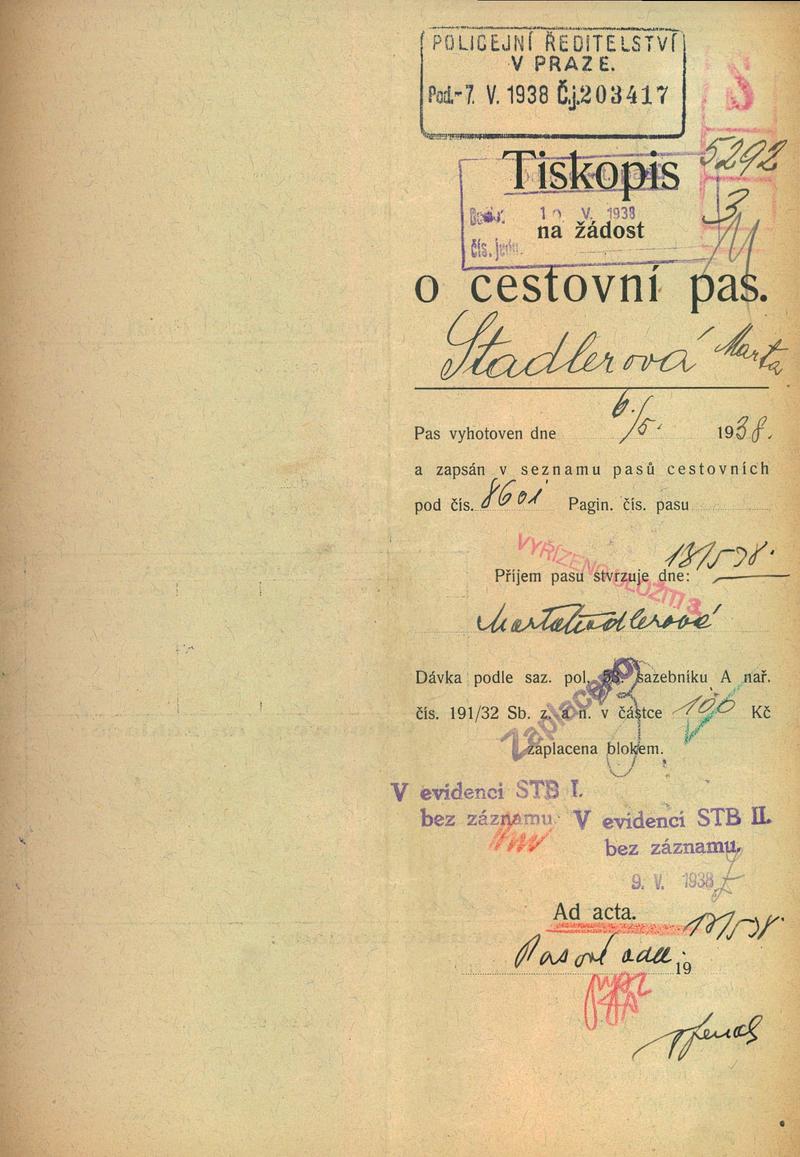 POLICEJNÍ ŘEDITELSTVÍ
V PRAZE.
Pod.-7. V. 1938 Č.j.203417
S
5292
3
Tiskopis
10. V. 1938
na žádost
čís. jedn.
o cestovní pas.
Stadlerová Marta
Pas vyhotoven dne 6/5. 1938.
a zapsán v seznamu pasů cestovních
pod čís. 8601 Pagin. čís. pasu
VYŘÍZENO ULOŽITI
13/5 38.
Příjem pasu stvrzuje dne:
Marta Stadlerová
Dávka podle saz. pol. 53. sazebníku A nař.
čís. 191/32 Sb. z. a n. v částce 100 Kč
Zaplaceno
zaplacena blokem.
V evidenci STB I.
bez záznamu.
V evidenci STB II.
bez záznamu.
9. V. 1938
Ad acta. 13/5 38.
Pasové odd.
19